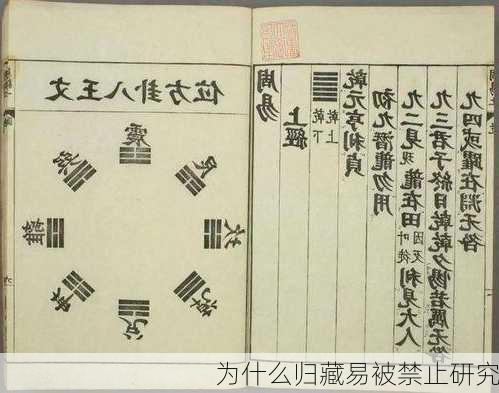 文王八卦方位
周易
上經
乾上
乾下
乾元亨利貞
初九潛龍勿用
九二見現龍在田利見大人
九三君子終日乾乾夕惕若厲无咎
九四或躍在淵无咎
为什么归藏易被禁止研究